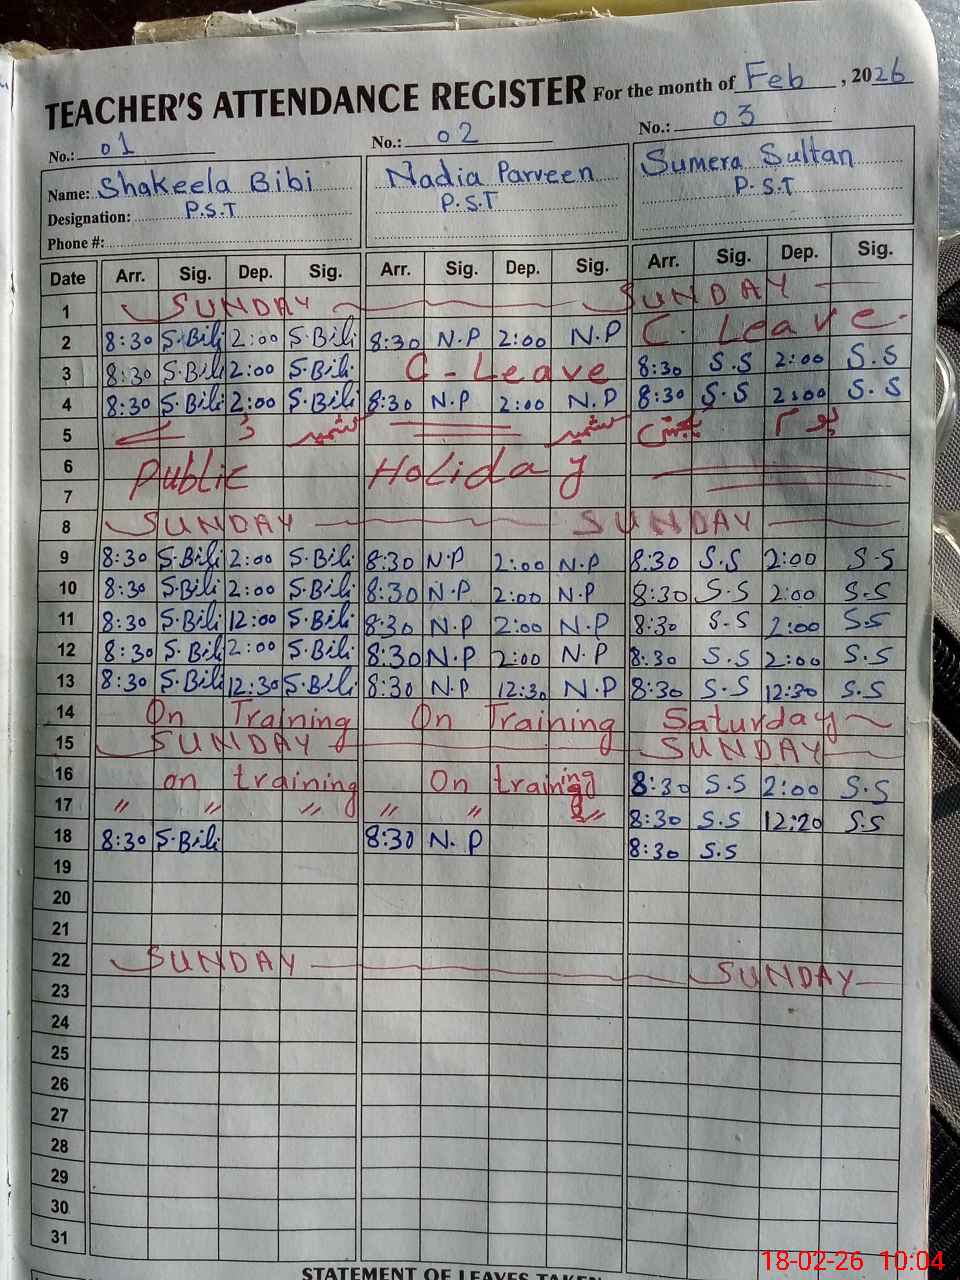 TEACHER'S ATTENDANCE REGISTER For the month of Feb, 2026
No.: 01 No.: 02 No.: 03
Name: Shakeela Bibi Nadia Parveen Sumera Sultan
Designation: P.S.T P.S.T P.S.T
Phone #:
Date Arr. Sig. Dep. Sig. Arr. Sig. Dep. Sig. Arr. Sig. Dep. Sig.
1 SUNDAY SUNDAY
2 8:30 S.Bibi 2:00 S.Bibi 8:30 N.P 2:00 N.P C. Leave.
3 8:30 S.Bibi 2:00 S.Bibi C-Leave 8:30 S.S 2:00 S.S
4 8:30 S.Bibi 2:00 S.Bibi 8:30 N.P 2:00 N.P 8:30 S.S 2:00 S.S
5 کشمیر
6 Public Holiday
7
8 SUNDAY SUNDAY
9 8:30 S.Bibi 2:00 S.Bibi 8:30 N.P 2:00 N.P 8:30 S.S 2:00 S.S
10 8:30 S.Bibi 2:00 S.Bibi 8:30 N.P 2:00 N.P 8:30 S.S 2:00 S.S
11 8:30 S.Bibi 12:00 S.Bibi 8:30 N.P 2:00 N.P 8:30 S.S 2:00 S.S
12 8:30 S.Bibi 2:00 S.Bibi 8:30 N.P 2:00 N.P 8:30 S.S 2:00 S.S
13 8:30 S.Bibi 12:30 S.Bibi 8:30 N.P 12:30 N.P 8:30 S.S 12:30 S.S
14 On Training On Training Saturday
15 SUNDAY SUNDAY
16 on training On training 8:30 S.S 2:00 S.S
17 " " " " " " 8:30 S.S 12:20 S.S
18 8:30 S.Bibi 8:30 N.P 8:30 S.S
19
20
21
22 SUNDAY SUNDAY
23
24
25
26
27
28
29
30
31
STATEMENT OF LEAVES TAKEN
18-02-26 10:04